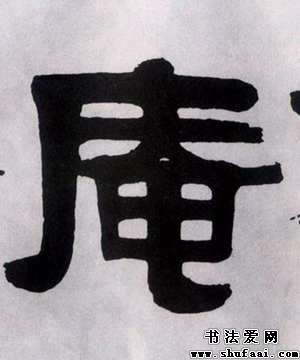 庵
书法爱网
www.shufaai.com